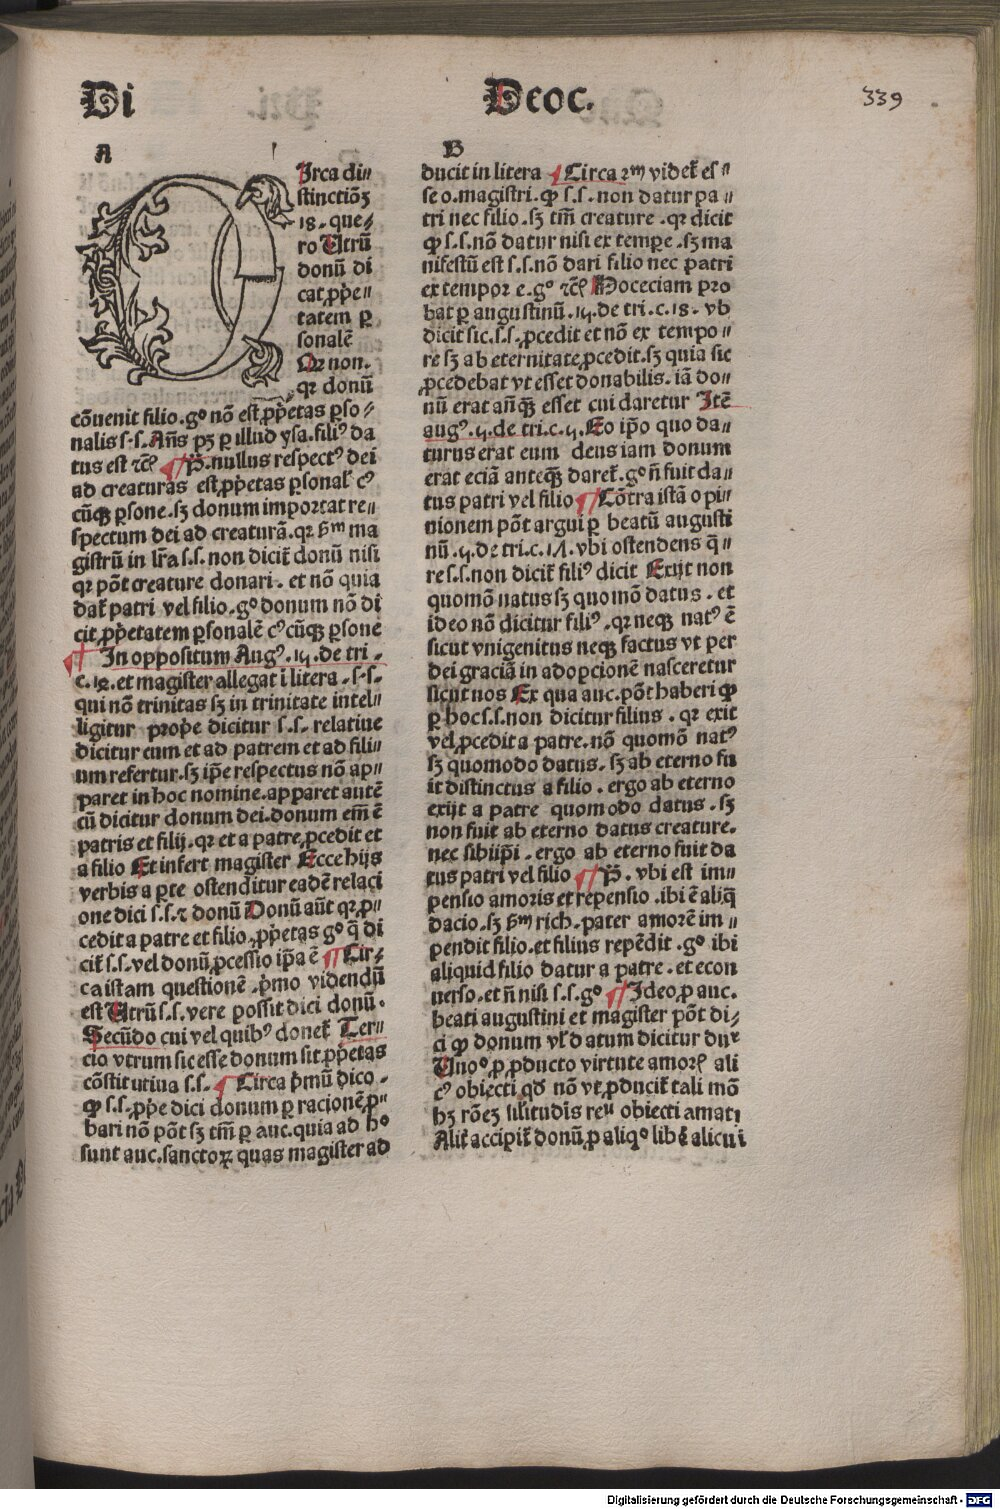 Di
Deoc.
339
A
Irca di⸗
stinctiōꝫ
18. que⸗
ro Utrū
donū di
cat ꝓṗe⸗
tatem ꝑ
sonalē
Qꝛ non.
qꝛ donū
cōuenit filio. gº nō est ꝓṗetas ꝑso⸗
nalis s.s. Añs pꝫ ꝑ illud ysa. filiꝰ da
tus est ⁊cͤ ¶ P̄. nullus respectꝰ dei
ad creaturas est ꝓṗetas ꝑsonal̄ cꝰ
cūqꝫ ꝑsone. sꝫ donum importat re⸗
spectum dei ad creaturā. qꝛ ẜm ma
gistrū in lr̄a s.s. non dicit̄ donū nisi
qꝛ pōt creature donari. et nō quia
dat̄ patri vel filio. gº donum nō di
cit ꝓṗetatem ꝑsonalē cꝰcūqꝫ ꝑsone
¶ In oppositum Augꝰ. 15. de tri.
c. 12. et magister allegat ī litera. s.s.
qui nō trinitas sꝫ in trinitate intel⸗
ligitur propṙe dicitur s.s. relatiue
dicitur cum et ad patrem et ad fili⸗
um refertur. sꝫ ip̄e respectus nō ap⸗
paret in hoc nomine. apparet autē
cū dicitur donum dei. donum em̄ ē
patris et filij. qꝛ et a patre ꝓcedit et
a filio Et infert magister Ecce hijs
verbis aperte ostenditur eadē relaci
one dici s.s. ⁊ donū Donū aūt qꝛ ꝓ⸗
cedit a patre et filio, ꝓṗetas gº q̄ di
cit̄ s.s. vel donū, ꝓcessio ip̄a ē ¶ Cir⸗
ca istam questionē ṗmo videndū
est Utrū s.s. vere possit dici donū.
Secūdo cui vel quibꝰ donet̄ Ter⸗
cio vtrum sic esse donum sit ꝓṗetas
cōstitutiua s.s. ¶ Circa ṗmū dico.
ꝙ s.s. ꝓṗe dici donum ꝑ racionē ꝓ⸗
bari nō pōt sꝫ tm̄ ꝑ auc. quia ad hº
sunt auc. sanctoꝝ quas magister ad
B
ducit in litera ¶ Circa 2m videt̄ es⸗
se o. magistri. ꝙ s.s. non datur pa⸗
tri nec filio. sꝫ tm̄ creature. qꝛ dicit
ꝙ s.s. nō datur nisi ex tempore. sꝫ ma
nifestū est s.s. nō dari filio nec patri
ex tempore. gº ⁊cͤ Hoc eciam pro
bat ꝑ augustinū. 15. de tri. c. 18. vb
dicit sic. s.s. ꝓcedit et nō ex tempo⸗
re sꝫ ab eternitate ꝓcedit. sꝫ quia sic
ꝓcedebat vt esset donabilis. iā do⸗
nū erat añq̄ꝫ esset cui daretur Itē
augꝰ. 5. de tri. c. 5. Eo ip̄o quo da⸗
turus erat eum deus iam donum
erat eciā anteq̄ꝫ daret̄. gº n̄ fuit da⸗
tus patri vel filio ¶ Cōtra istā opi⸗
nionem pōt argui ꝑ beatū augusti
nū. 5. de tri. c. 14. vbi ostendens q̄⸗
re s.s. non dicit̄ filiꝰ dicit Exijt non
quomō natus sꝫ quomō datus. et
ideo nō dicitur filiꝰ. qꝛ neqꝫ natꝰ ē
sicut vnigenitus neqꝫ factus vt per
dei graciā in adopcionē nasceretur
sicut nos Ex qua auc. pōt haberi ꝙ
ꝑ hoc s.s. non dicitur filius. qꝛ exit
vel ꝓcedit a patre. nō quomō natꝰ
sꝫ quomodo datus. sꝫ ab eterno fu
it distinctus a filio. ergo ab eterno
exijt a patre quomodo datus. sꝫ
non fuit ab eterno datus creature.
nec sibiip̄i. ergo ab eterno fuit da
tus patri vel filio ¶ P̄. vbi est im⸗
pensio amoris et repensio. ibi ē aliq̄
dacio. sꝫ ẜm rich. pater amorē im⸗
pendit filio. et filius repēdit. gº ibi
aliquid filio datur a patre. et econ
uerso. et n̄ nisi s.s. gº ¶ Ideo ꝓ auc.
beati augustini et magister pōt di⸗
ci ꝙ donum vl̄ datum dicitur dupͬ
Unoº ꝓ ꝓducto virtute amorꝭ ali
cꝰ obiecti qd̄ nō vt ꝓducit̄ tali mō
hꝫ rōeꝫ sil̄itudīs reu obiecti amati
Alit̄ accipit̄ donū ꝓ aliqº libē alicui
Digitalisierung gefördert durch die Deutsche Forschungsgemeinschaft - DFG